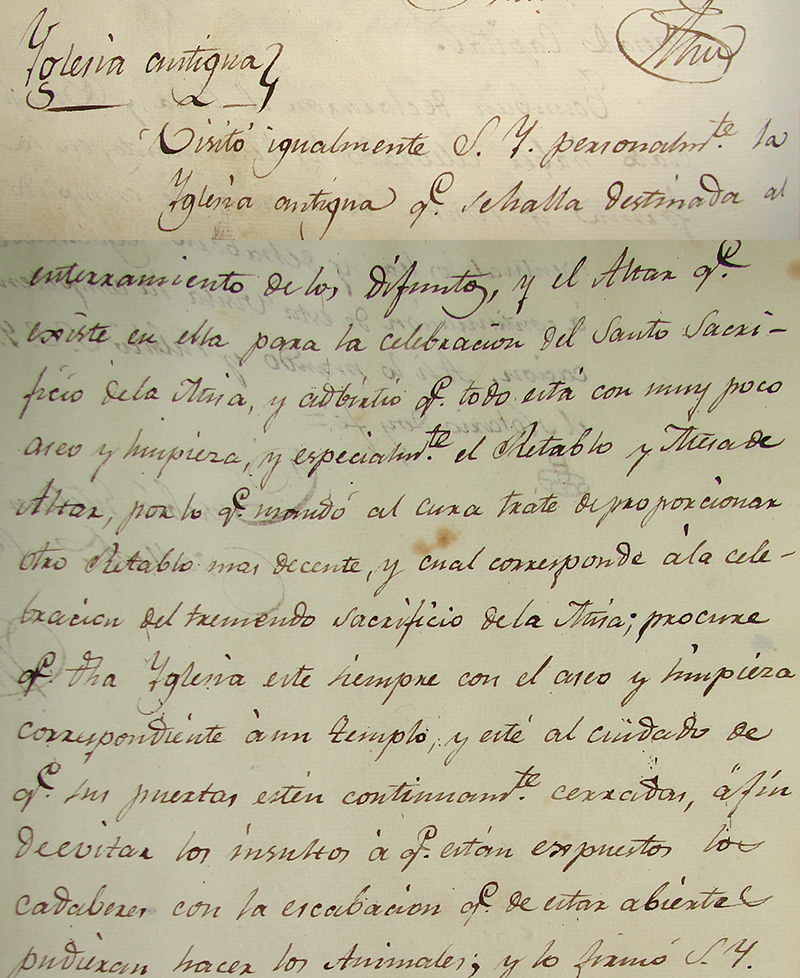 Yglesia antigua
Visitó igualmente S. Y. personalmte. la
Yglesia antigua q.e se halla destinada al
enterramiento de los difuntos, y el Altar q.e
existe en ella para la celebracion del Santo Sacri-
ficio de la Misa, y adbirtió q.e todo está con muy poco
aseo y limpieza, y especialmte. el Retablo y Mesa de
Altar, por lo q.e mandó al cura trate de proporcionar
otro Retablo mas decente, y cual corresponde à la cele-
bracion del tremendo sacrificio de la Misa; procure
q.e dha Yglesia este siempre con el aseo y limpieza
correspondiente à un templo, y esté al cuidado de
q.e sus puertas estén continuamte. cerradas, à fin
de evitar los insultos à q.e están expuestos los
cadaberes con la escabacion q.e de estar abiertas
pudieran hacer los Animales; y lo firmó S. Y.